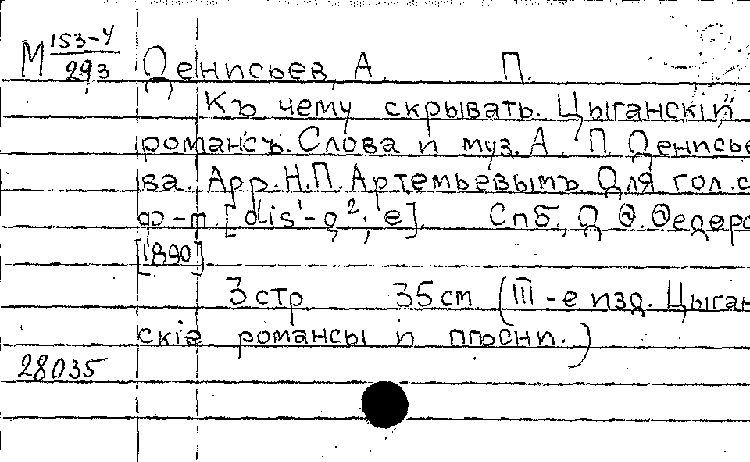 М 153-4/293 Денисьев, А. П.
Къ чему скрывать. Цыганскій
романсъ. Слова и муз. А. П. Денисье
ва. Арр. Н. П. Артемьевымъ. Для гол. с
ф-п. [dis¹-g²; e]. Спб., Д. Ѳ. Федоро
[1890].
3 стр. 35 cm (III-е изд. Цыган
скіе романсы и пѣсни.)
28035